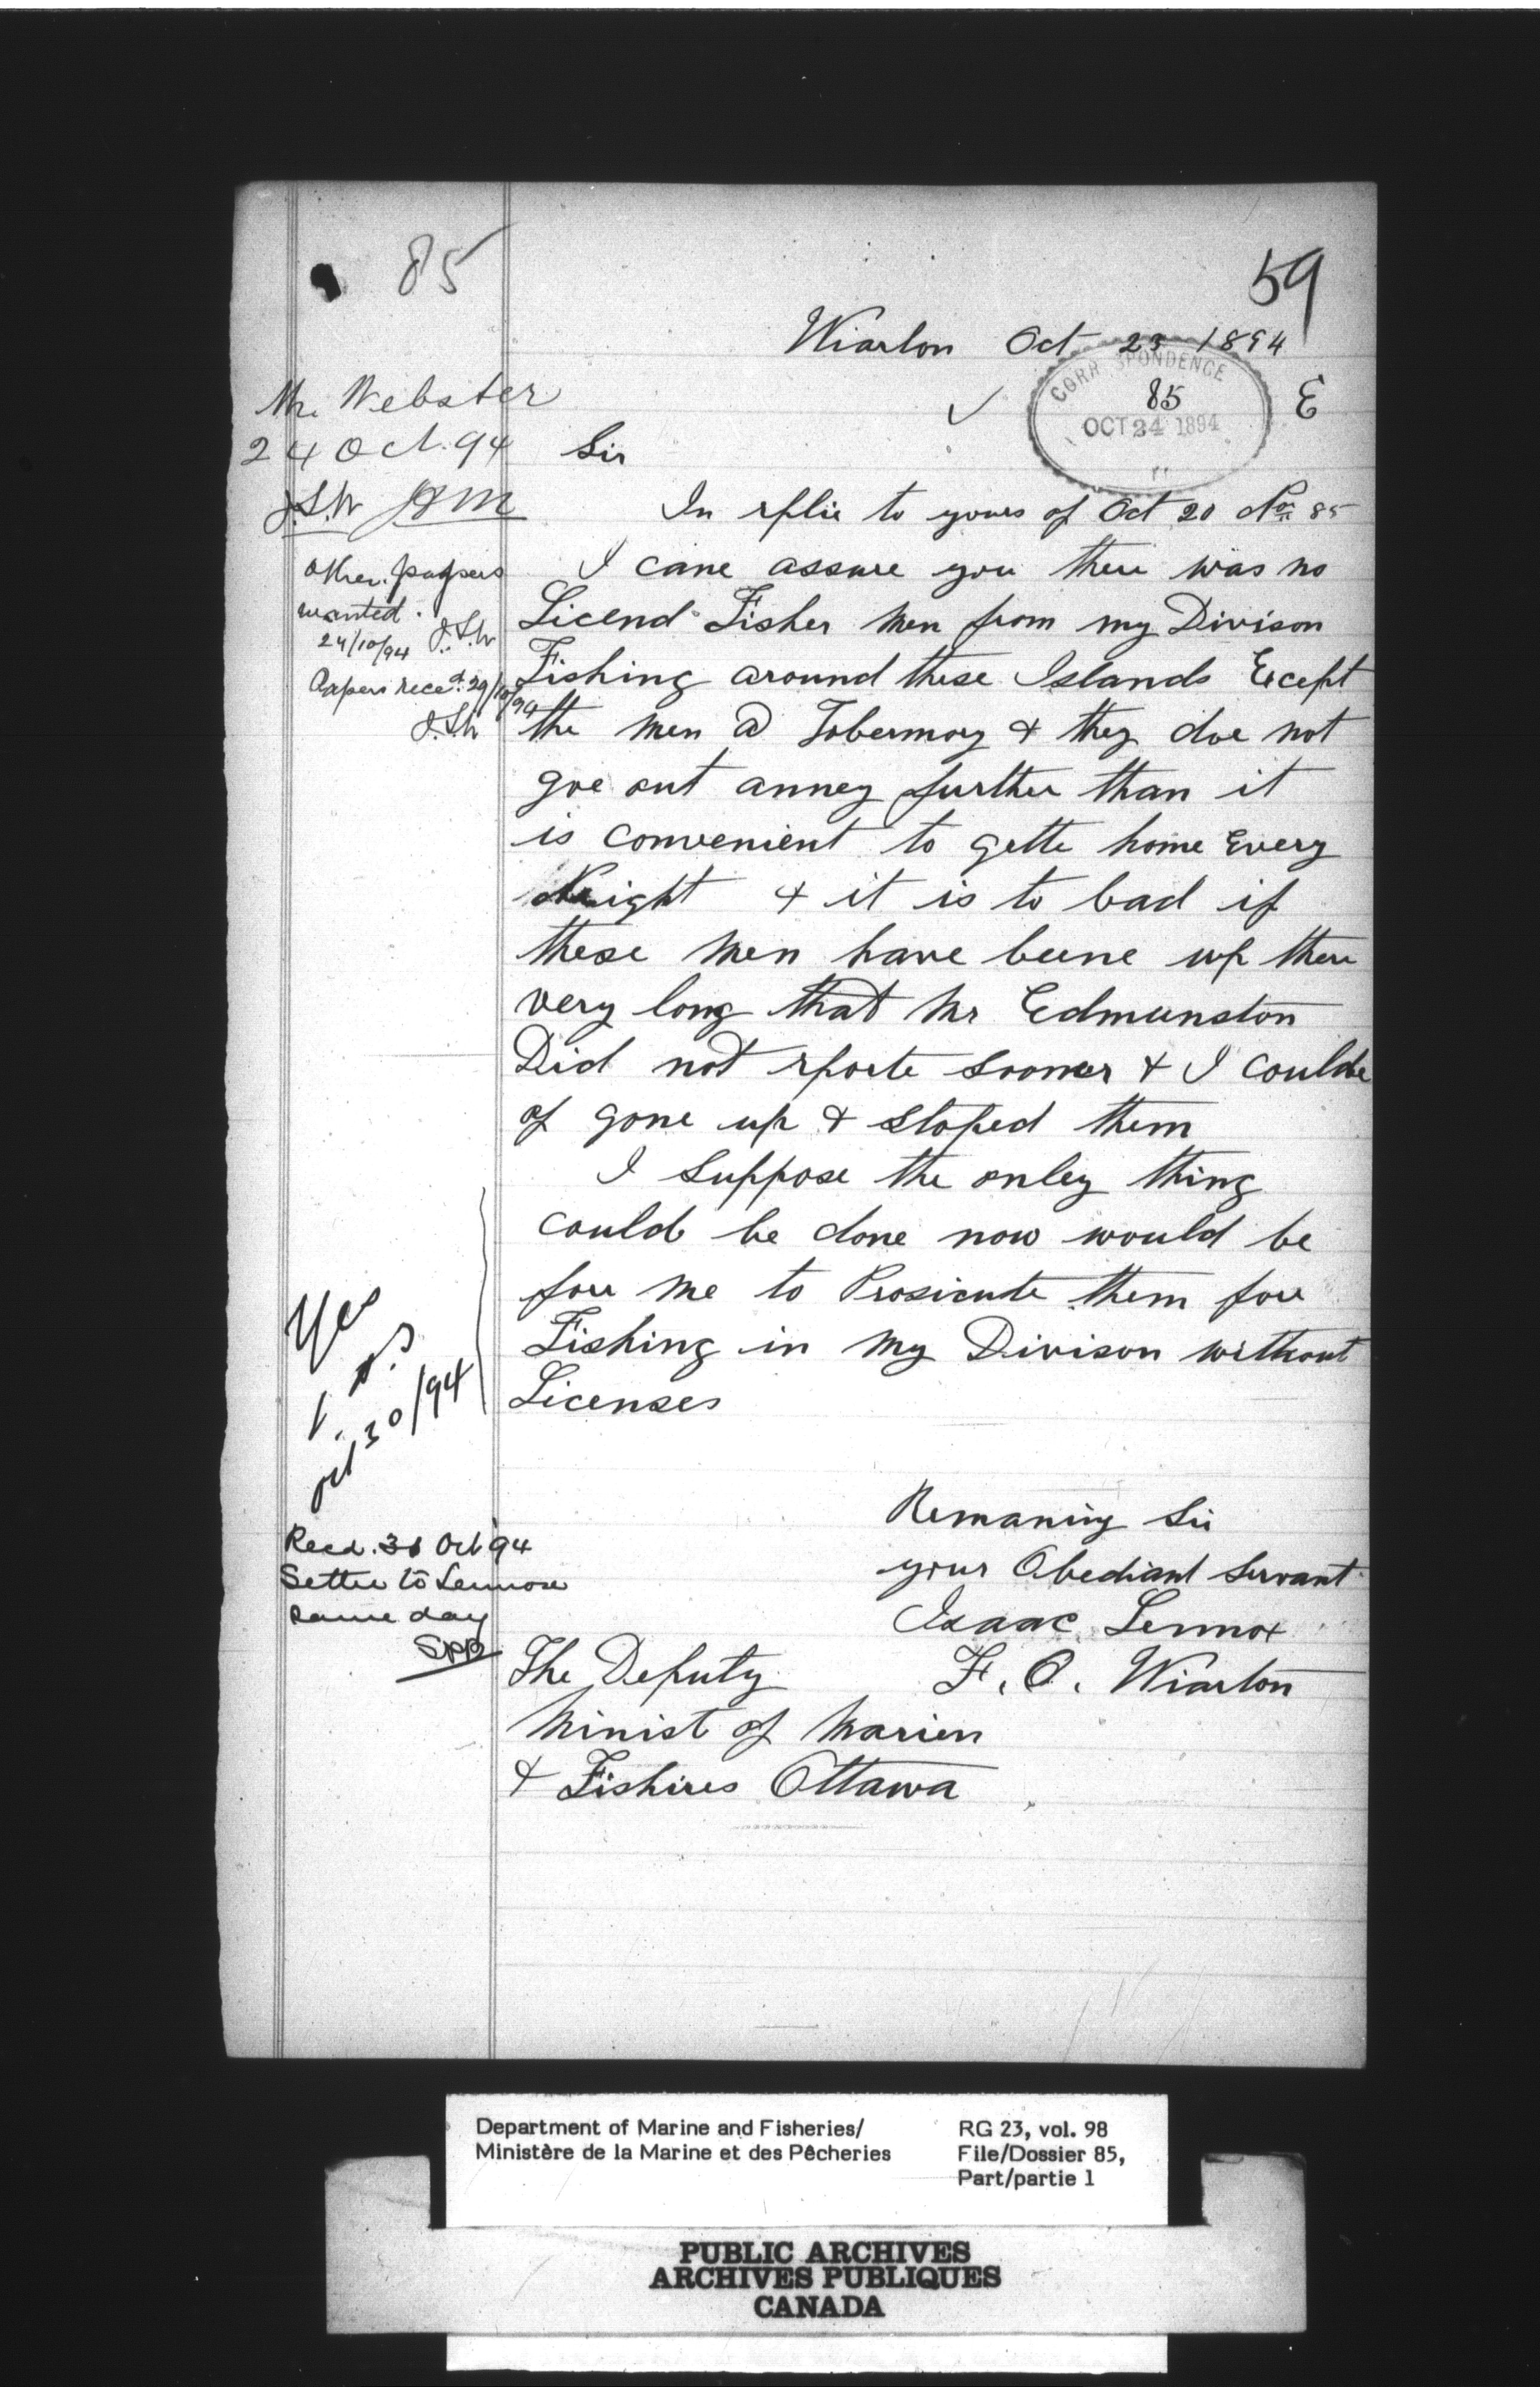 85
59
Wiarton Oct 23 1894
CORRESPONDENCE
85
OCT 24 1894
E
Mr. Webster
24 Oct. 94
J.S.W
Sir
In rplie to yours of Oct 20 No 85
I cane assure you there was no
Licend Fisher Men from my Divison
Fishing around these Islands Except
the Men @ Tobermory & they doe not
goe out anney further than it
is convenient to gette home Every
Night & it is to bad if
these Men have beene up there
very long that Mr Edmunston
Did not rporte sooner & I coulde
of gone up & stoped them
I Suppose the onley thing
could be done now would be
fore Me to Prosicute them fore
Fishing in My Divison without
Licenses
Other papers
wanted.
24/10/94 J.S.W
Papers reced. 29/10/94
J.S.W
Yes
Oct 30/94
Recd. 31 Oct 94
Letter to Lennox
same day
Remaning Sir
your Obediant Servant
Isaac Lennox
F. O. Wiarton
The Deputy
Minist of Marien
& Fishires Ottawa
Department of Marine and Fisheries/
Ministère de la Marine et des Pêcheries
RG 23, vol. 98
File/Dossier 85,
Part/partie 1
PUBLIC ARCHIVES
ARCHIVES PUBLIQUES
CANADA